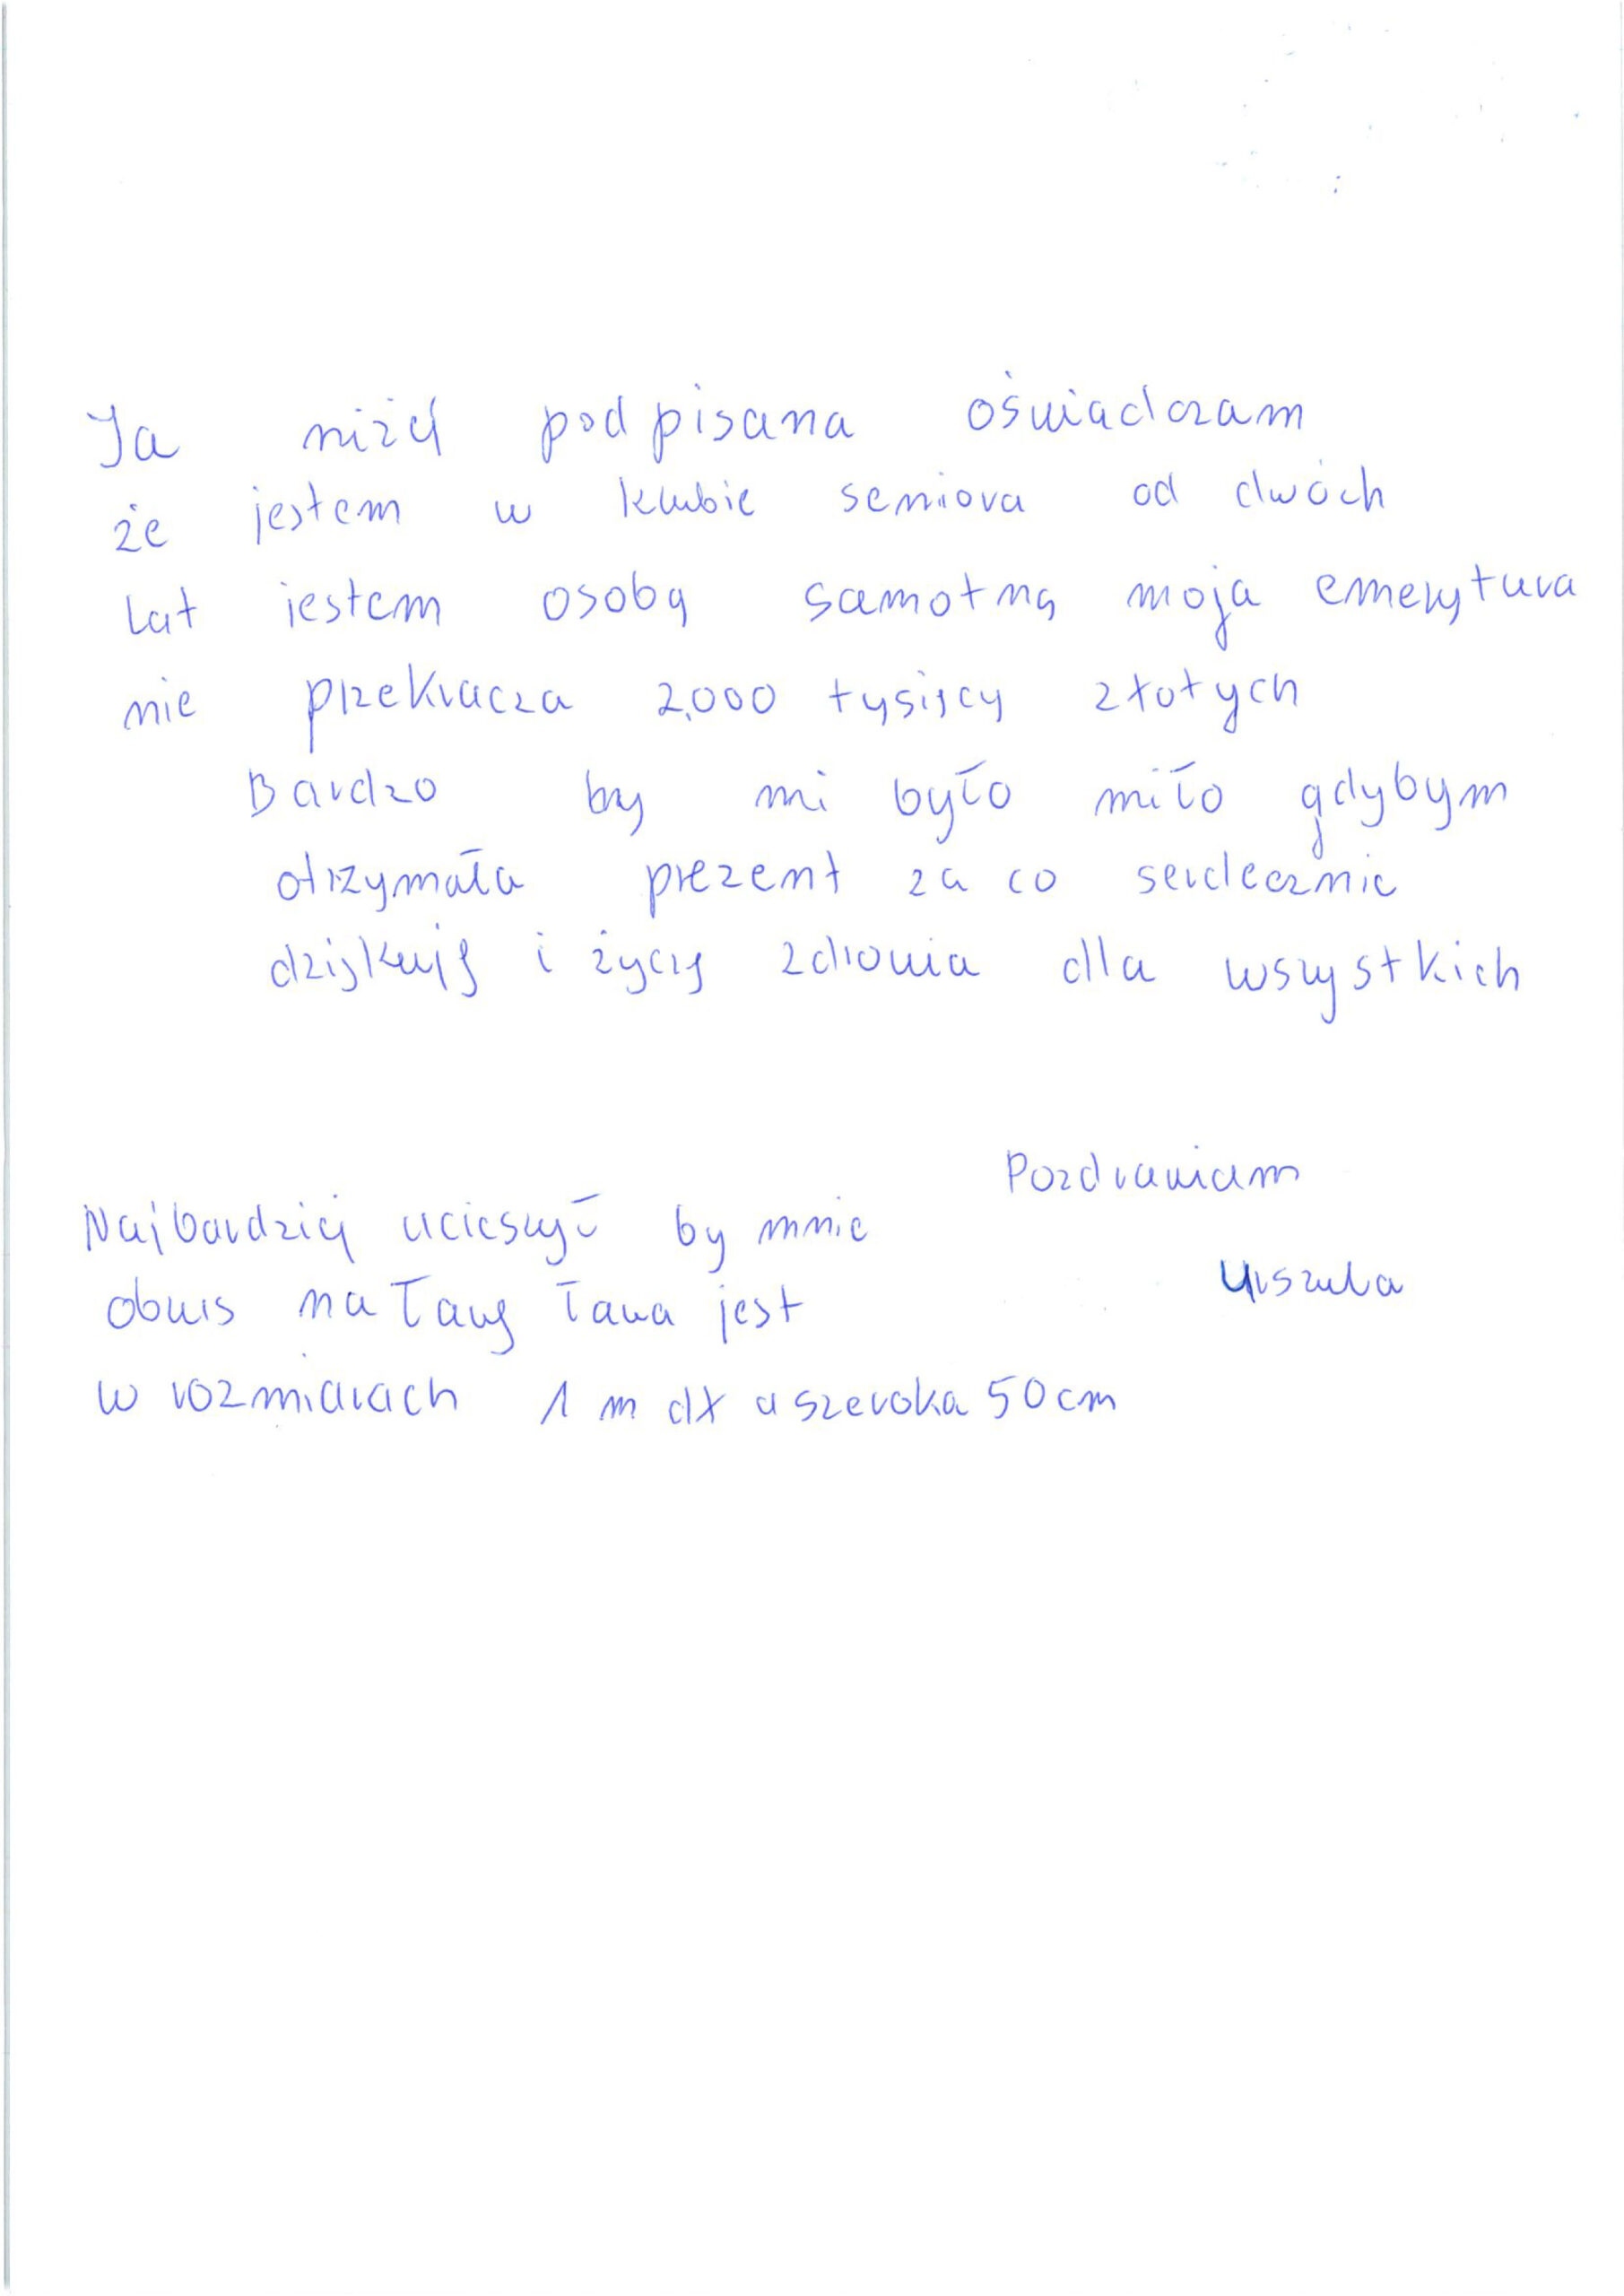 Ja niżej podpisana oświadczam
że jestem w klubie seniora od dwóch
lat jestem osobą samotną moja emerytura
nie przekracza 2.000 tysięcy złotych
Bardzo by mi było miło gdybym
otrzymała prezent za co serdecznie
dziękuję i życzę zdrowia dla wszystkich
Pozdrawiam
Urszula
Najbardziej ucieszył by mnie
obrus na ławę ława jest
w rozmiarach 1 m dł a szeroka 50 cm